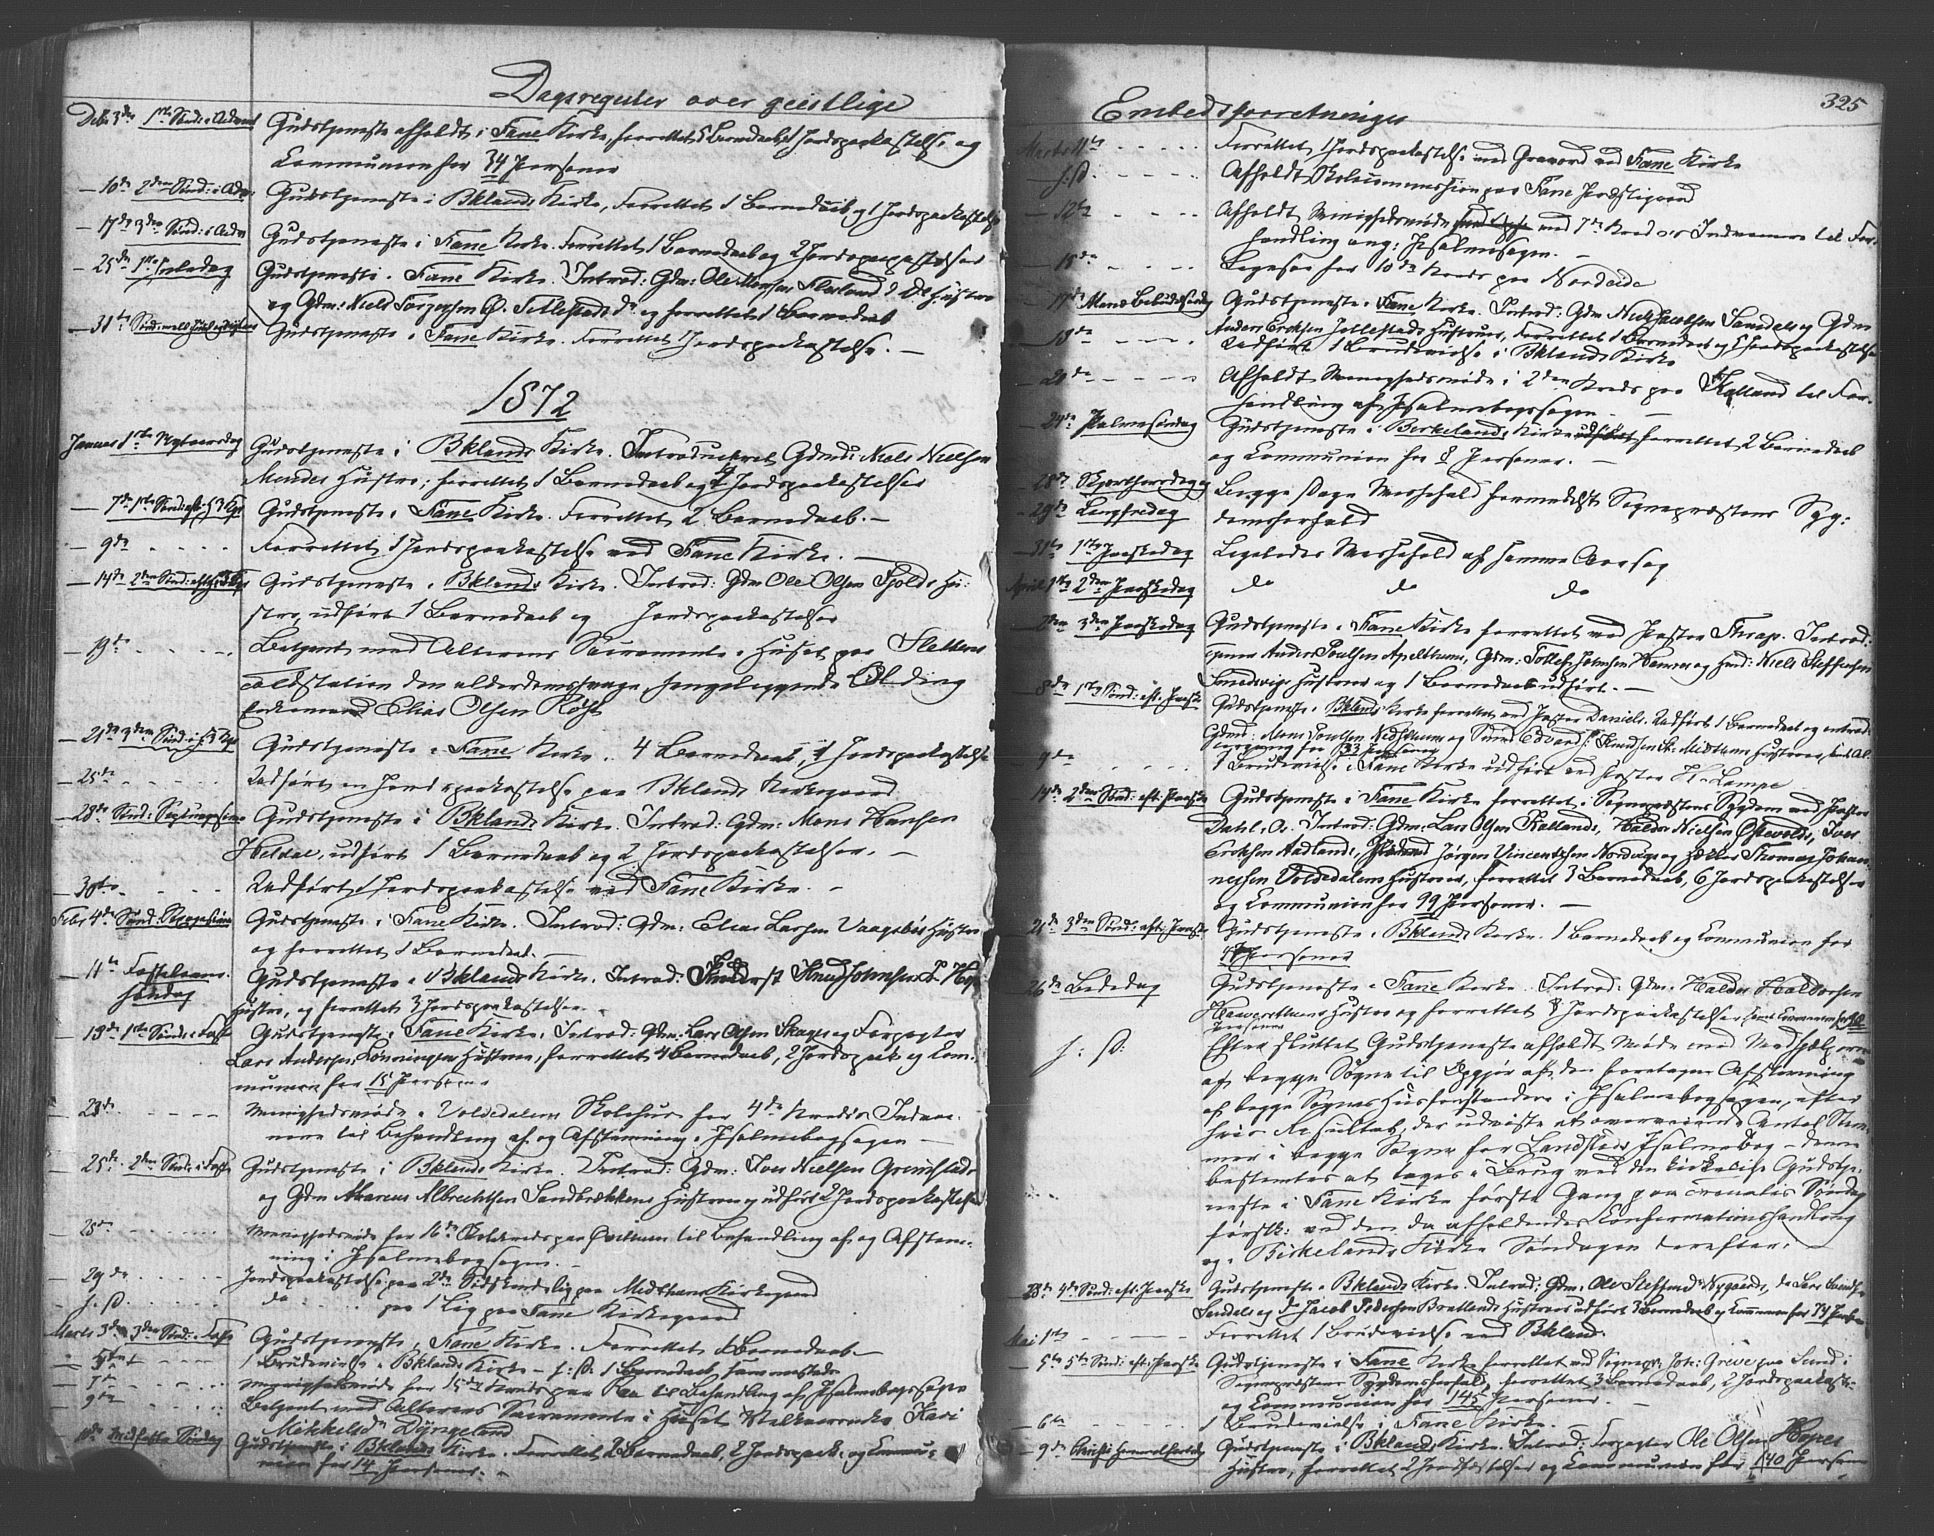 Dagsregister over geistlige
Decbr 3die 1ste Sønd: i Advent Gudstjeneste afholdt i Fane Kirke, forrettet 5 Barnedaab, 1 Jordspaakastelse og
Communion for 34 Personer
— 10de 2den Sønd: i Adv: Gudstjeneste i Bklands Kirke, Forrettet 1 Barnedaab og 1 Jordspaakastelse
— 17de 3die Sønd: i Adv: Gudstjeneste i Fane Kirke. Forrettet 1 Barnedaab og 2 Jordspaakastelser
— 25de 1ste Juledag Gudstjeneste i Fane Kirke. Introd: Gdm: Ole Monsen Flesland
og Gdm: Niels Jørgensen Titlestad do og forrettet 1 Barnedaab
— 31te Sønd: mell: Juul og Nytaar Gudstjeneste i Fane Kirke. Forrettet 1 Jordspaakastelse. —
1872
Januar 1ste Nytaarsdag Gudstjeneste i Bklands Kirke. Introduceret Gdmd: Niels Nielsen
Hustro; forrettet 1 Barnedaab og Jordspaakastelser
— 7de 1ste Sønd: eft: H 3 Kgr Gudstjeneste i Fane Kirke. Forrettet 2 Barnedaab. —
— 9de Forrettet 1 Jordspaakastelse ved Fane Kirke. —
— 14de 2den Sønd: eft: H 3 Kgr Gudstjeneste i Bklands Kirke. Introd: Gdm Ole Olsen Tjolds Hu-
stro, udført 1 Barnedaab og Jordspaakastelser
— 19de Betjent med Alterens Sacramente i Huset paa
den alderdomssvage, sengeliggende Olding
Elias Olsen
— 21de 3den Sønd: e: H 3 Kgr Gudstjeneste i Fane Kirke. 4 Barnedaab, 1 Jordspaakastelse
— 25de Udført en Jordspaakastelse paa Bklands Kirkegaard
— 28de Sønd: Septuagesima Gudstjeneste i Bklands Kirke. Introd: Gdm: Mons Hansen
Heldal, udført 1 Barnedaab og 2 Jordspaakastelser. —
— 30te Udført 1 Jordspaakastelse ved Fane Kirke. —
Febr 4de Sønd: Gudstjeneste i Fane Kirke. Introd: Gdm: Elias Larsen Vaagsbøs Hustro
og forrettet 1 Barnedaab. —
— 11te Fastelavns-
søndag Gudstjeneste i Bklands Kirke. Introd: Knud Johnsen
Hustro, og forrettet 3 Jordspaakastelser. —
1ste Sønd: i Faste Gudstjeneste i Fane Kirke. Introd: Gdm: Lars Olsen Skages og Forpagter
Lars Andersen Hustruer, forrettet 4 Barnedaab, 2 Jordspaak: og Com-
munion for 15 Personer
— 23de Menighedsmøde i Voldedalens Skolehus for 4de Kreds's Indvaa-
nere til Behandling af og Afstemning i Psalmebogsagen —
— 25de 2den Sønd: i Faste Gudstjeneste i Bklands Kirke. Introd: Gdm: Iver Nielsen Grimstads
og Gdm Marcus Albrechtsen Sandbrækkens Hustruer og udført 2 Jordspaakastelser
— 28de Menighedsmøde for 16de Skolekreds paa til Behandling af og Afstem-
ning i Psalmebogsagen. —
— 29de Jordspaakastelse paa 2de Lig paa Midthuns Kirkegaard
s: D. do paa 1 Lig paa Fane Kirkegaard
Marts 3die 3die Sønd: i Faste Gudstjeneste, Fane Kirke. Forrettet Barnedaab —
— 5te 1 Brudevielse i Bklands Kirke — s: D. 1 Barnedaab sammesteds
— 7de Menighedsmøde for 15de Kreds paa til Behandling af Psalmebogssagen
— 9de Betjent med Alterens Sacramente i Huset Kari
Mikkelsdr Dyngeland
— 10de Midfaste Søndag Gudstjeneste i Bklands Kirke. Forrettet 2 Barnedaab, 2 Jordspaak. og Commu-
nion for 14 Personer. —
Embedsforretninger
325
Marts 11te Forrettet 1 Jordspaakastelse med Gravord ved Fane Kirke
s: D. Afholdt Skolecommission paa Fane Præstegaard
— 12te Afholdt Menighedsmøde med 7de Kreds's Indvaanere til For-
handling ang: Psalmesagen. —
— 15de for 10de Kreds paa Nordeide
— 17de Mariæ Bebudelsesdag Gudstjeneste i Fane Kirke. Introd: Gdm Niels Jacobsen Sandals og Gdm
Anders Ericksen Titlestads Hustruer, Forrettet 1 Barnedaab og Jordspaakastelse
— 19de Udført 1 Brudevielse i Bklands Kirke
Afholdt Menighedsmøde i 2den Kreds paa Kalland til For-
handling af Psalmebogssagen. —
— 24de Palmesøndag Gudstjeneste i Birkelands Kirke, forrettet 2 Barnedaab
og Communion for 8 Personer. —
— 28de Skjærthorsdag og
— 29de Langfredag Begge Dage Messefald formedelst Sognepræstens Syg-
domsforfald
— 31te 1ste Paaskedag Ligeledes Messefald af samme Aarsag
April 1ste 2den Paaskedag do do do
— 2den 3die Paaskedag Gudstjeneste i Fane Kirke forrettet ved Pastor Thrap. Introd:
Anders Poulsen Apelthuns, Gdm: Tollef Johnsen Hammer og Smd: Niels Steffensen
Smørsvigs Hustruer og 1 Barnedaab udført. —
— 8de 1ste Sønd: eft: Paaske Gudstjeneste i Bklands Kirke forrettet ved Pastor Daniels. Udført 1 Barnedaab og introd:
Gdmd: Mons Poulsen Nedstuens og Smd Edvard Knudsen Midthuns Hustruer, samt Al-
tergang for 133 Personer
— 9de 1 Brudevielse i Fane Kirke udført ved Pastor H: Lampe
— 14de 2den Sønd: eft: Paaske Gudstjeneste i Fane Kirke forrettet i Sognepræstens Sygdom ved Pastor
Dahl, Os. Introd: Gdm: Lars Olsen Kallands, Haldor Nielsen Østevolds, Iver
Ericksen Aadlands, Jørgen Vincentsen Nordvigs og Thomas Johan-
nessen Voldedalens Hustruer, forrettet 3 Barnedaab, 6 Jordspaakastelser
og Communion for 99 Personer. —
— 21de 3die Sønd: eft: Paaske Gudstjeneste i Bklands Kirke. 1 Barnedaab og Communion for
Personer
— 26de Bededag Gudstjeneste i Fane Kirke. Introd: Gdm: Haldor Haldorsen
Hustro og forrettet 8 Jordspaakastelser samt Communion for
Personer
s: D: Efter sluttet Gudstjeneste afholdt Møde med Medhjælperne
af begge Sogne til Opgjør af den foretagne Afstemning
af begge Sognes Husforstandere i Psalmebogsagen, efter
hvis Resultat, der udviste et overveiende Antal Stem-
mer i begge Sogne for Landstads Psalmebog — denne
bestemtes at tages i Brug ved den kirkelige Gudstje-
neste i Fane Kirke første Gang paa Søndag
førstk: ved den da afholdendes Confirmationshandling
og i Birkelands Kirke Søndagen derefter.
28de 4de Sønd: eft: Paaske Gudstjeneste i Bklands Kirke. Introd: Gdm: Ole Steffens: Nygaards, do Lars
Sandals og do Jacob Pedersen Bratlands Hustruer udført 3 Barnedaab og Communion for 74 Personer
Mai 1ste Forrettet 1 Brudevielse ved Bkland.
— 5te 5te Sønd: eft: Paaske Gudstjeneste i Fane Kirke forrettet ved Sognepr: Joh: Greve paa Sund i
Sognepræstens Sygdomsforfald, forrettet 3 Barnedaab, 2 Jordspaakast:
og Communion for 145 Personer.
— 6te 1 Brudevielse i Fane Kirke.
— 9de Christi Himmelfartsdag Gudstjeneste i Bklands Kirke. Introd: Forpagter Ole Olsen Hopes
Hustro, forrettet 2 Jordfæstelser og Communion for 140 Personer